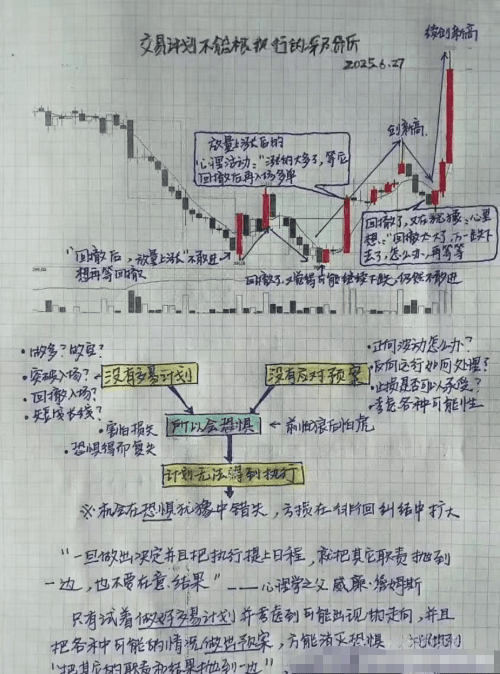 交易计划不能被执行的车乃分析
2025.6.27
续创新高
创新高
放量上涨后的
心理活动:"涨的太多了,等它
回撤后再入场多单
回撤了,又在犹豫:心里
想:"回撤太大了,万一跌下
去了,怎么办,再等等
"回撤后,放量上涨"不敢进
想再等回撤
回撤了,又觉得可能继续下跌,仍然不敢进
·做多?做空?
·突破入场?
·回撤入场?
·短线长线?
没有交易计划
没有应对预案
·正向波动怎么办?
·反向运行如何处理?
·止损是否可以承受?
·考虑各种可能性
·害怕损失
·恐惧得而复失
所以会恐惧
← 前怕狼后怕虎
计划无法得到执行
※机会在恐惧犹豫中错失,亏损在徘徊纠结中扩大
"一旦做出决定并且把执行提上日程,就把其它职责抛到
一边,也不要在意结果" ——心理学之父 威廉·詹姆斯
只有试着做好交易计划并考虑到可能出现的走向,并且
把各种可能的情况做出预案,方能消灭恐惧
"把其它的职责和结果抛到一边",